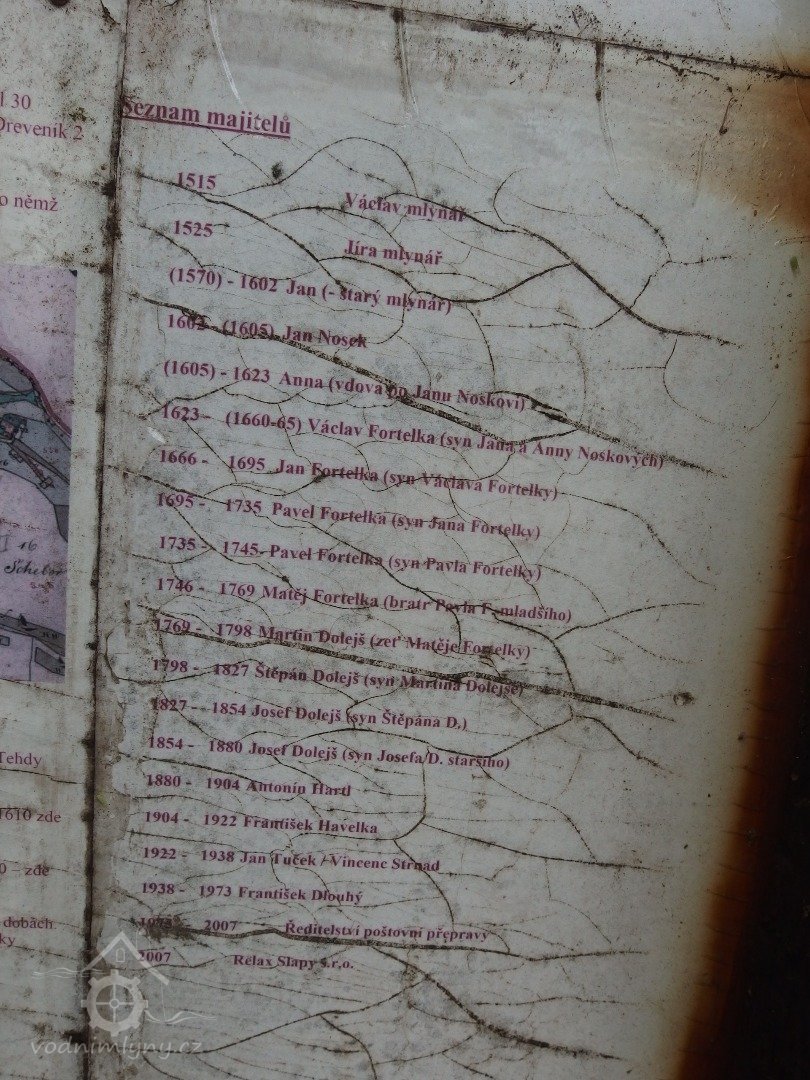 1 30
Dreveník 2
o němž
Seznam majitelů
1515 Václav mlynář
1525 Jíra mlynář
(1570) - 1602 Jan (- starý mlynář)
1602 (1605) Jan Nosek
(1605) - 1623 Anna (vdova po Janu Noskovi)
1623 - (1660-65) Václav Fortelka (syn Jana a Anny Noskových)
1666 - 1695 Jan Fortelka (syn Václava Fortelky)
1695 - 1735 Pavel Fortelka (syn Jana Fortelky)
1735 - 1745 Pavel Fortelka (syn Pavla Fortelky)
1746 - 1769 Matěj Fortelka (bratr Pavla F. mladšího)
1769 - 1798 Martin Dolejš (zeť Matěje Fortelky)
1798 - 1827 Štěpán Dolejš (syn Martina Dolejše)
1827 - 1854 Josef Dolejš (syn Štěpána D.)
1854 - 1880 Josef Dolejš (syn Josefa D. staršího)
1880 - 1904 Antonín Hartl
1904 - 1922 František Havelka
1922 - 1938 Jan Tuček / Vincenc Strnad
1938 - 1973 František Dlouhý
1973 2007 Ředitelství poštovní přepravy
2007 Relax Slapy s.r.o.
16
Tehdy
1610 zde
0 – zde
dobách
ky
vodnimlyny.cz